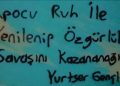 Apocu Ruh İle
Yenilenip Özgürlük
Savaşını Kazanacağız
Yurtsever Gençlik